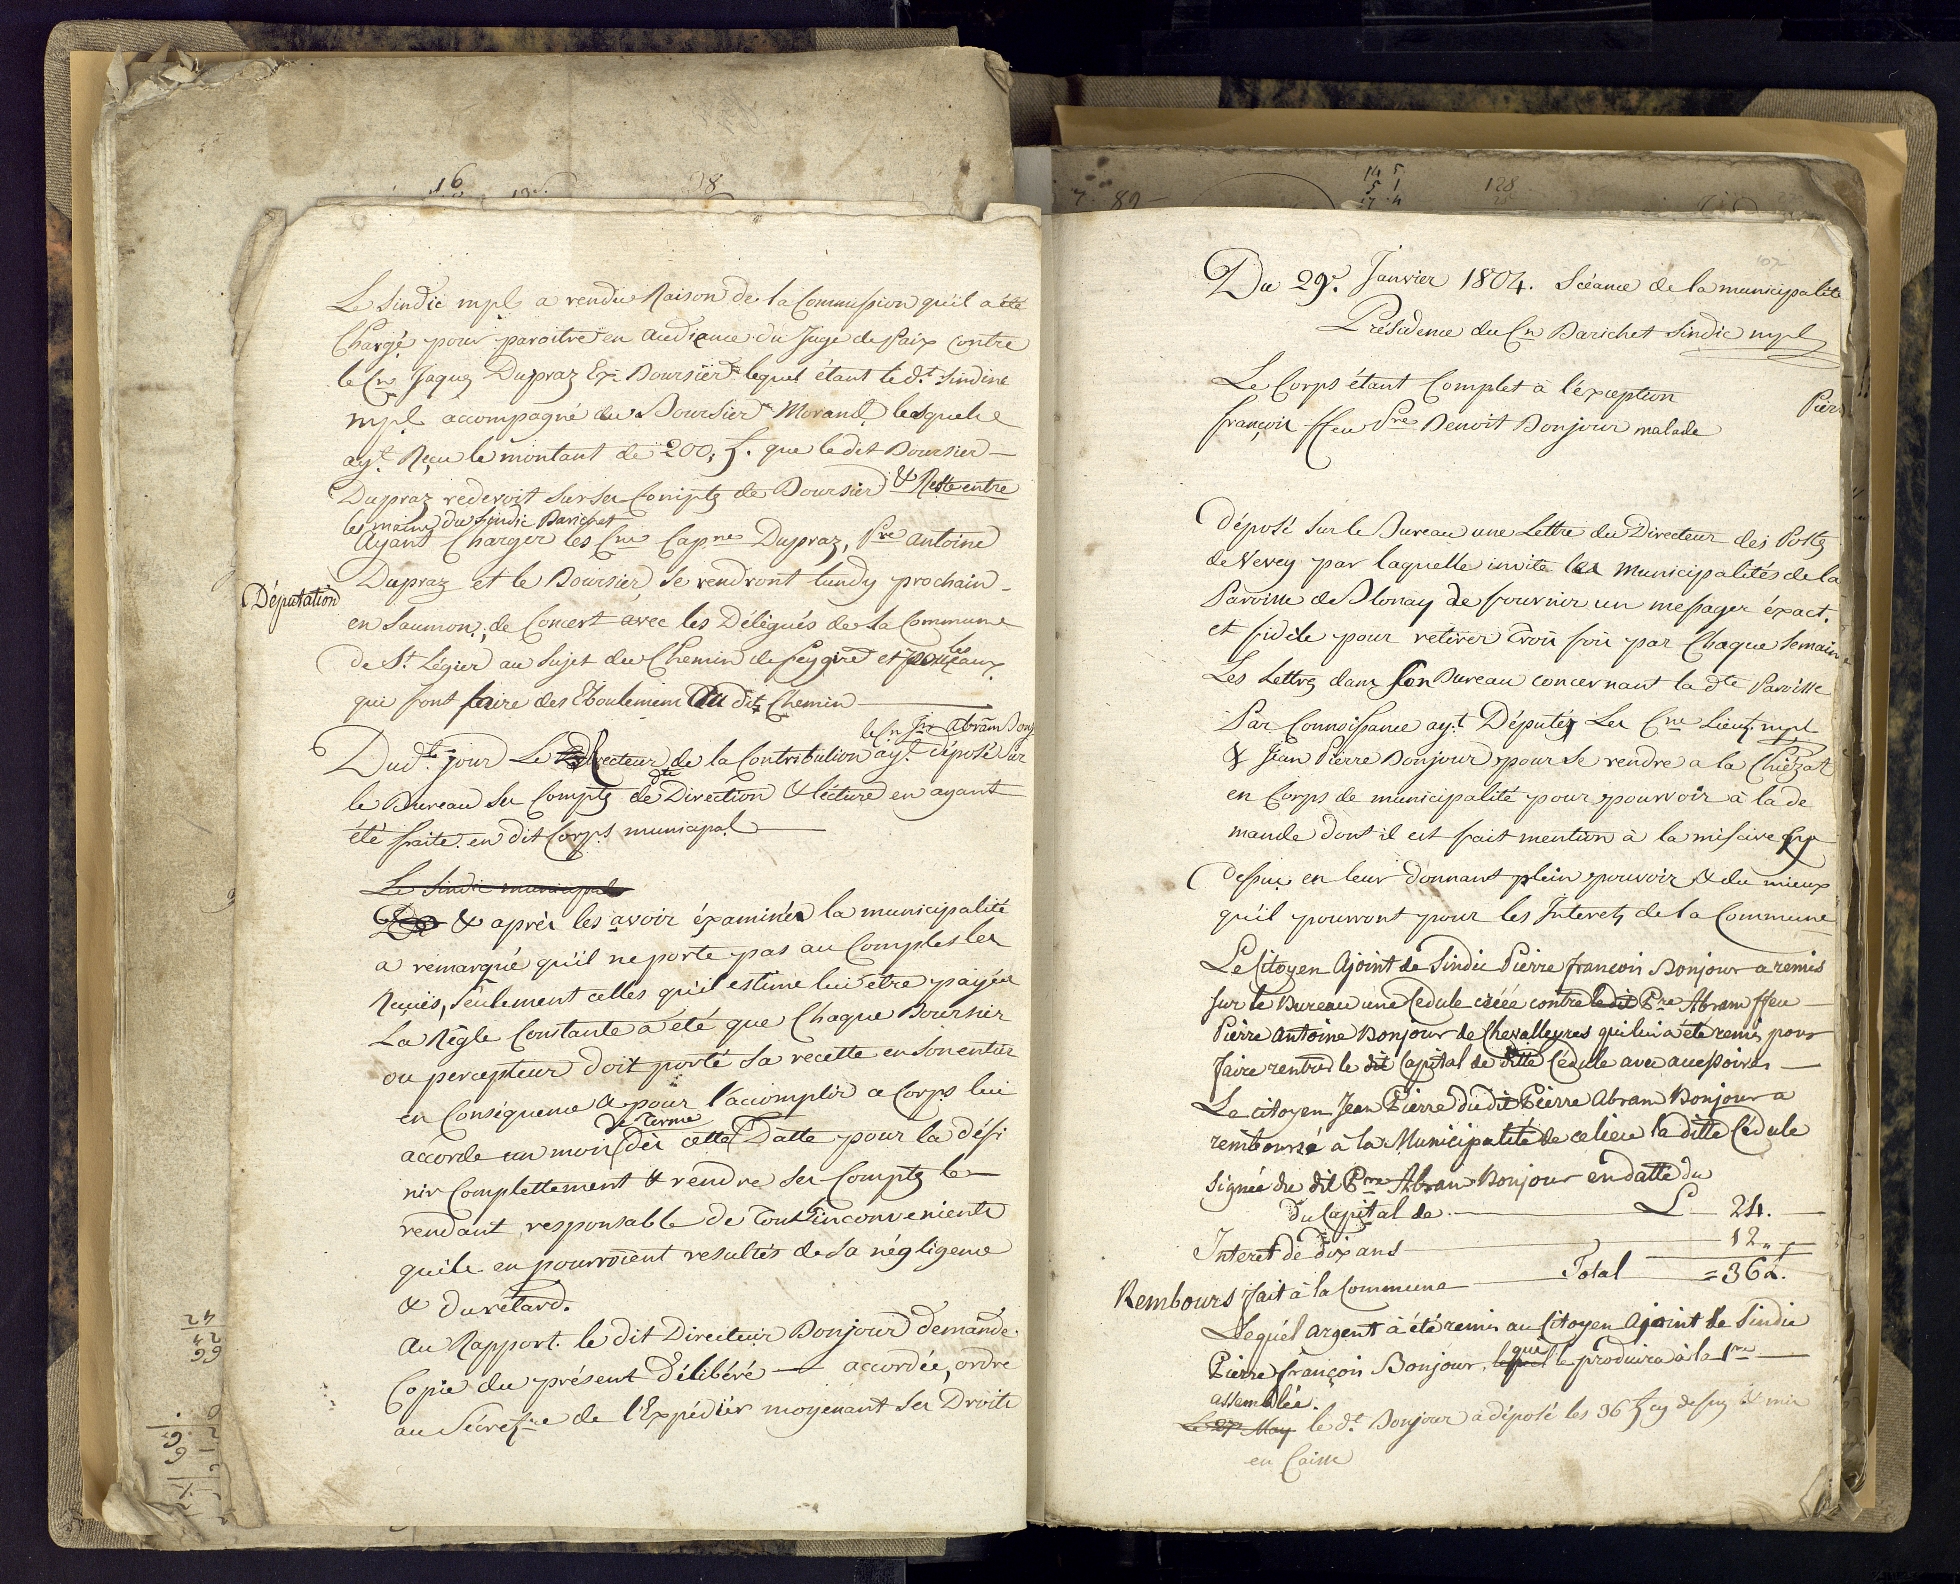 Le Sindic mpl a rendu Raison de la Commission qu'il a été
Chargé pour paroitre en audiance du Juge de Paix contre
le Cn Jaques Dupraz Ex-Boursier lequel étant le dt. Sindine
mpl accompagné du Boursier Morand, lesquele
ayt. Reçu le montant de 200. f. que le dit Boursier
Dupraz redevoit sur ses Compts de Boursier & Reste entre
les mains du Sindic Barichet
Ayant Charger les Cns Capne Dupraz, Pre antoine
Dupraz et le Boursier, se rendront lundy prochain
Députation
en Saumon, de Concert avec les Délégués de la Commune
de St. Légier au Sujet du Chemin de feygire et les
qui font faire des Eboulement au dit Chemin
le Cn Jn Abram Bonj
Dudt. jour Le Directeur de la Contribution ayt. déposé Sur
le Bureau ses Compts de dte Direction & lecture en ayant
été faite en dit Corps municipal
Le Sindic municipal
De & après les avoir éxaminés la municipalité
a remarqué qu'il ne porte pas au Comples les
Reçües, Seulement celles qu'il estime lui être payées
La Règle Constante a été que Chaque Boursier
ou percepteur doit porté sa recette en son entier
en Conséquence & pour l'acomplir ce Corps lui
de terme
accorde un mois dès cette Datte pour la défi
nir Complettement & rendre ses Compts le
rendant responsable de tout inconvenients
quile en pourroient resultés de sa négligence
& du retard.
au Rapport. le dit Directeur Bonjour demande
Copie du présent Délibéré — accordée, ordre
au Sécretre de l'Expédier moyenant ses Droits
Du 29e. Janvier 1804. Séance de la municipalité
Présidence du Cn Barichet Sindic mpl
Le Corps étant Complet à l'exception
Pier
françois ffeu Pre Benoit Bonjour malade
déposé sur le Bureau une Lettre du Directeur des Postes
de Vevey par laquelle invite les Municipalités de la
Paroisse de Blonay de fournir un messager éxact.
et fidèle pour retirer trois fois par Chaque Semaine
Les Lettres dans son Bureau concernant la dte Paroisse
Par Connoissance ayt. Députés Les Cns Lieut. mpl
& Jean Pierre Bonjour pour se rendre a la Chiézat
en Corps de municipalité pour pourvoir à la de
mande dont il est fait mention à la missive cy
dessus en leur donnant plein pouvoir & du mieux
qu'il pourront pour les Interets de la Commune
Le Citoyen Ajoint de Sindic Pierre françois Bonjour a remis
sur le Bureau une Cedule créée contre le dit Pre Abram ffeu
Pierre Antoine Bonjour de Chevalleyres qui lui a été remis pour
faire rentrer le dit Capital de ditte Cédule avec accessoires
Le citoyen Jean Pierre du dit Pierre Abram Bonjour a
remboursé à la Municipalité de ce lieu la ditte Cedule
signée du dit Pre Abram Bonjour en datte du
du Capital de L 24.
Interet de dix ans 12
Total = 36
Rembours fait à la Commune
Lequel argent à été remis au Citoyen Ajoint de Sindic
Pierre françois Bonjour, lequel qui le produira à la 1re
assemblée.
Le 27 May le dt. Bonjour a déposé les 36 f cy dessus & mis
en Caisse